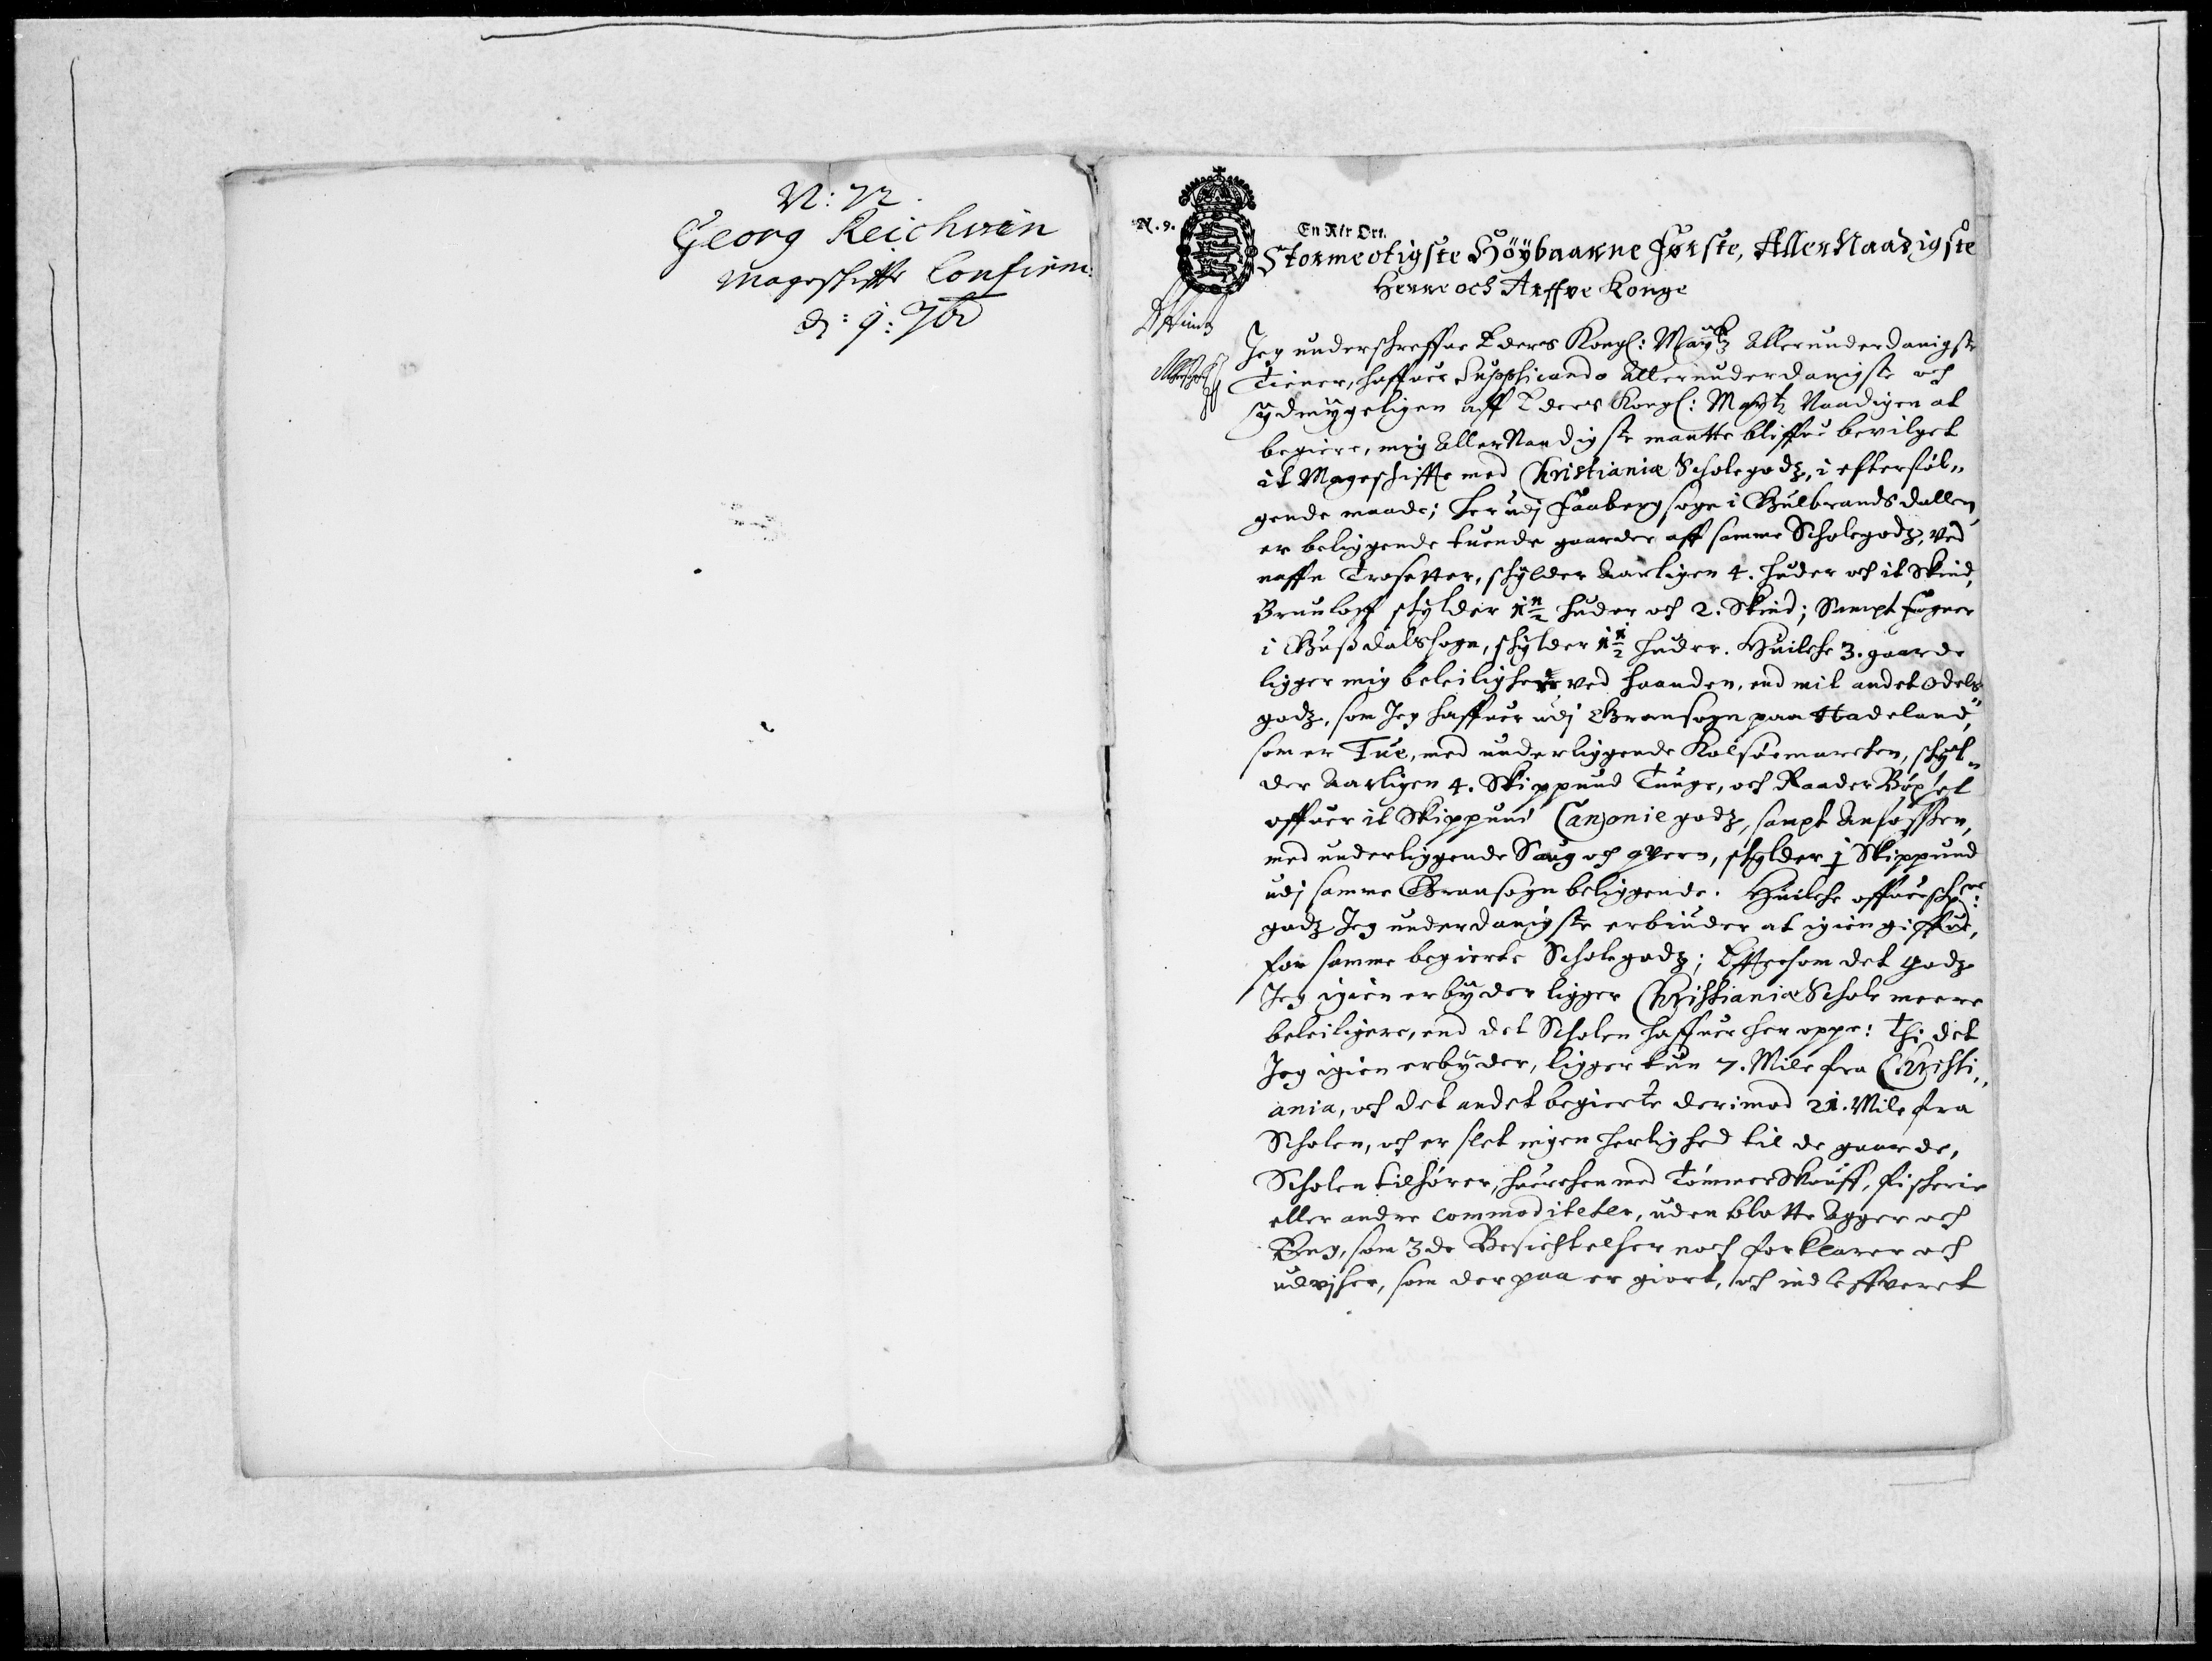 N: 72.
Georg Reichwin
Mageskiffte Confirm:
d: 9: 7br
N. 9.
En Rdr Ort.
Stormectigste Höybaarne Første, AllerNaadigste
Herre och Arffve Konge
Jeg underschreffne Eders Kongl: Maytz Allerunderdanigste
Tiener, haffuer Supplicando Allerunderdanigste och
ydmygeligen aff Eders Kongl: Maytz Naadigen at
begiere, mig AllerNaadigste maatte bliffue bevilget
it Mageschiffte med Christianiæ Scholegodz, i efterføl„
gende maade; her udj Faaberg sogn i Gulbrandsdallen
er beliggende tuende gaarder aff samme Scholegodz, ved
naffn Trosetter, schylder Aarligen 4. huder och it Skind,
schylder 1 1/2 huder och 2. Skind; Sampt
i Gusdals sogn, schylder 1 1/2 huder. Huilche 3. gaarde
ligger mig beleilighere ved haanden, end mit andet Odels
godz, som Jeg haffuer udj Gransogn paa Hadeland,
som er Tue, med underliggende Kolsöemarchen, schyl„
der Aarligen 4. Skippund Tunge, och Raader Böxsel
offuer it Skippund Canonie godz, sampt
med underliggende Saug och qvern, schylder j Skippund
udj samme Gransogn beliggende. Huilche
godz Jeg underdanigste erbiuder at igiengiffue,
for samme begierte Scholegodz; Effterson det godz
Jeg igien erbyder ligger Christianiæ Schole meere
beleiligere, end det Scholen haffuer her oppe: Thi det
Jeg igien erbyder, ligger kun 7. Mile fra Christi„
ania, och det andet begierte derimod 21. Mile fra
Scholen, och er slet ingen herlighed til de gaarde,
Scholen tilhører, huerchen med TömmerSkouff, fischerie
eller andre commoditeter, uden blotte Agger och
Eng, som 3de Besichtelser noch forklarer och
udviser, som der paa er giort, och indleffveret